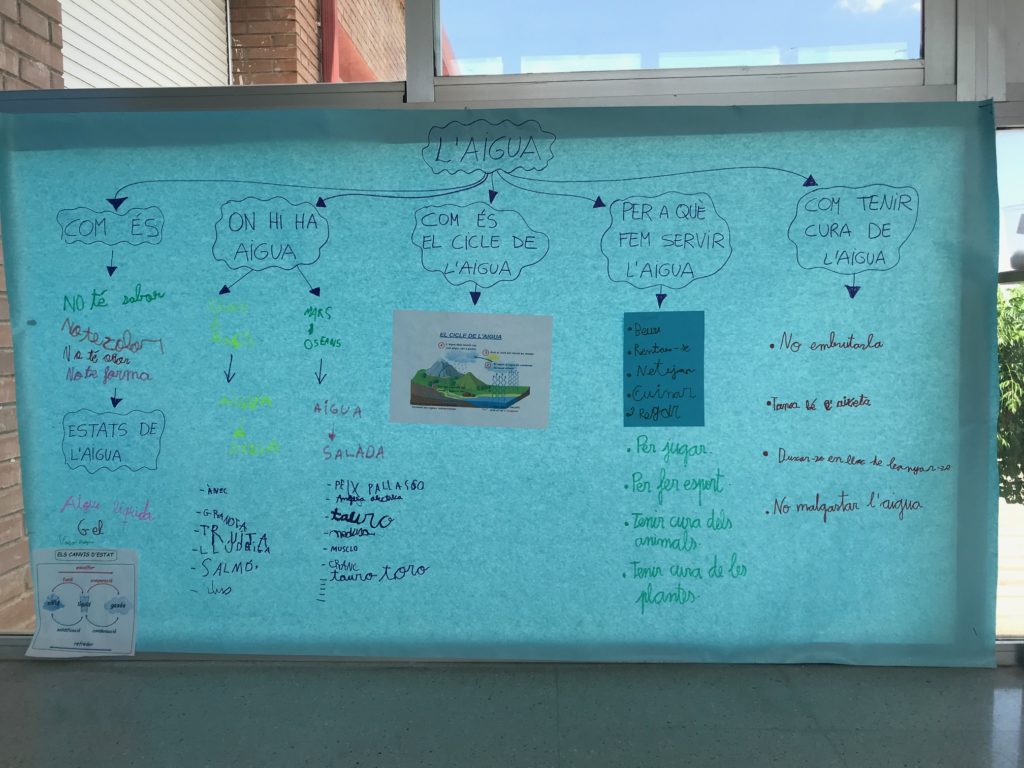 L'AIGUA
COM ÉS
NO té sabor
No te color
No té olor
No te forma
ESTATS DE
L'AIGUA
Aigua líquida
Gel
ELS CANVIS D'ESTAT
escalfar
fusió
evaporació
sòlid
líquid
gasós
solidificació
condensació
refredar
ON HI HA
AIGUA
AIGUA
- ÀNEC
- GRANOTA
- TRUITA
- LLÚDRIGA
- SALMÓ.
MARS
OSEANS
AIGUA
SALADA
- PEIX PALLASSO
tauro
- medusa
- MUSCLO
CRANC
tauro toro
COM ÉS
EL CICLE DE
L'AIGUA
EL CICLE DE L'AIGUA
PER A QUÈ
FEM SERVIR
L'AIGUA
• Beure
• Rentar-se
• Netejar
• Cuinar
• Regar
• Per jugar.
• Per fer esport.
• Tenir cura dels
animals.
• Tenir cura de les
plantes.
COM TENIR
CURA DE
L'AIGUA
• No embrutarla
• Tanca bé l'aixeta
• Duxar-se en lloc de banyar-se
• No malgastar l'aigua